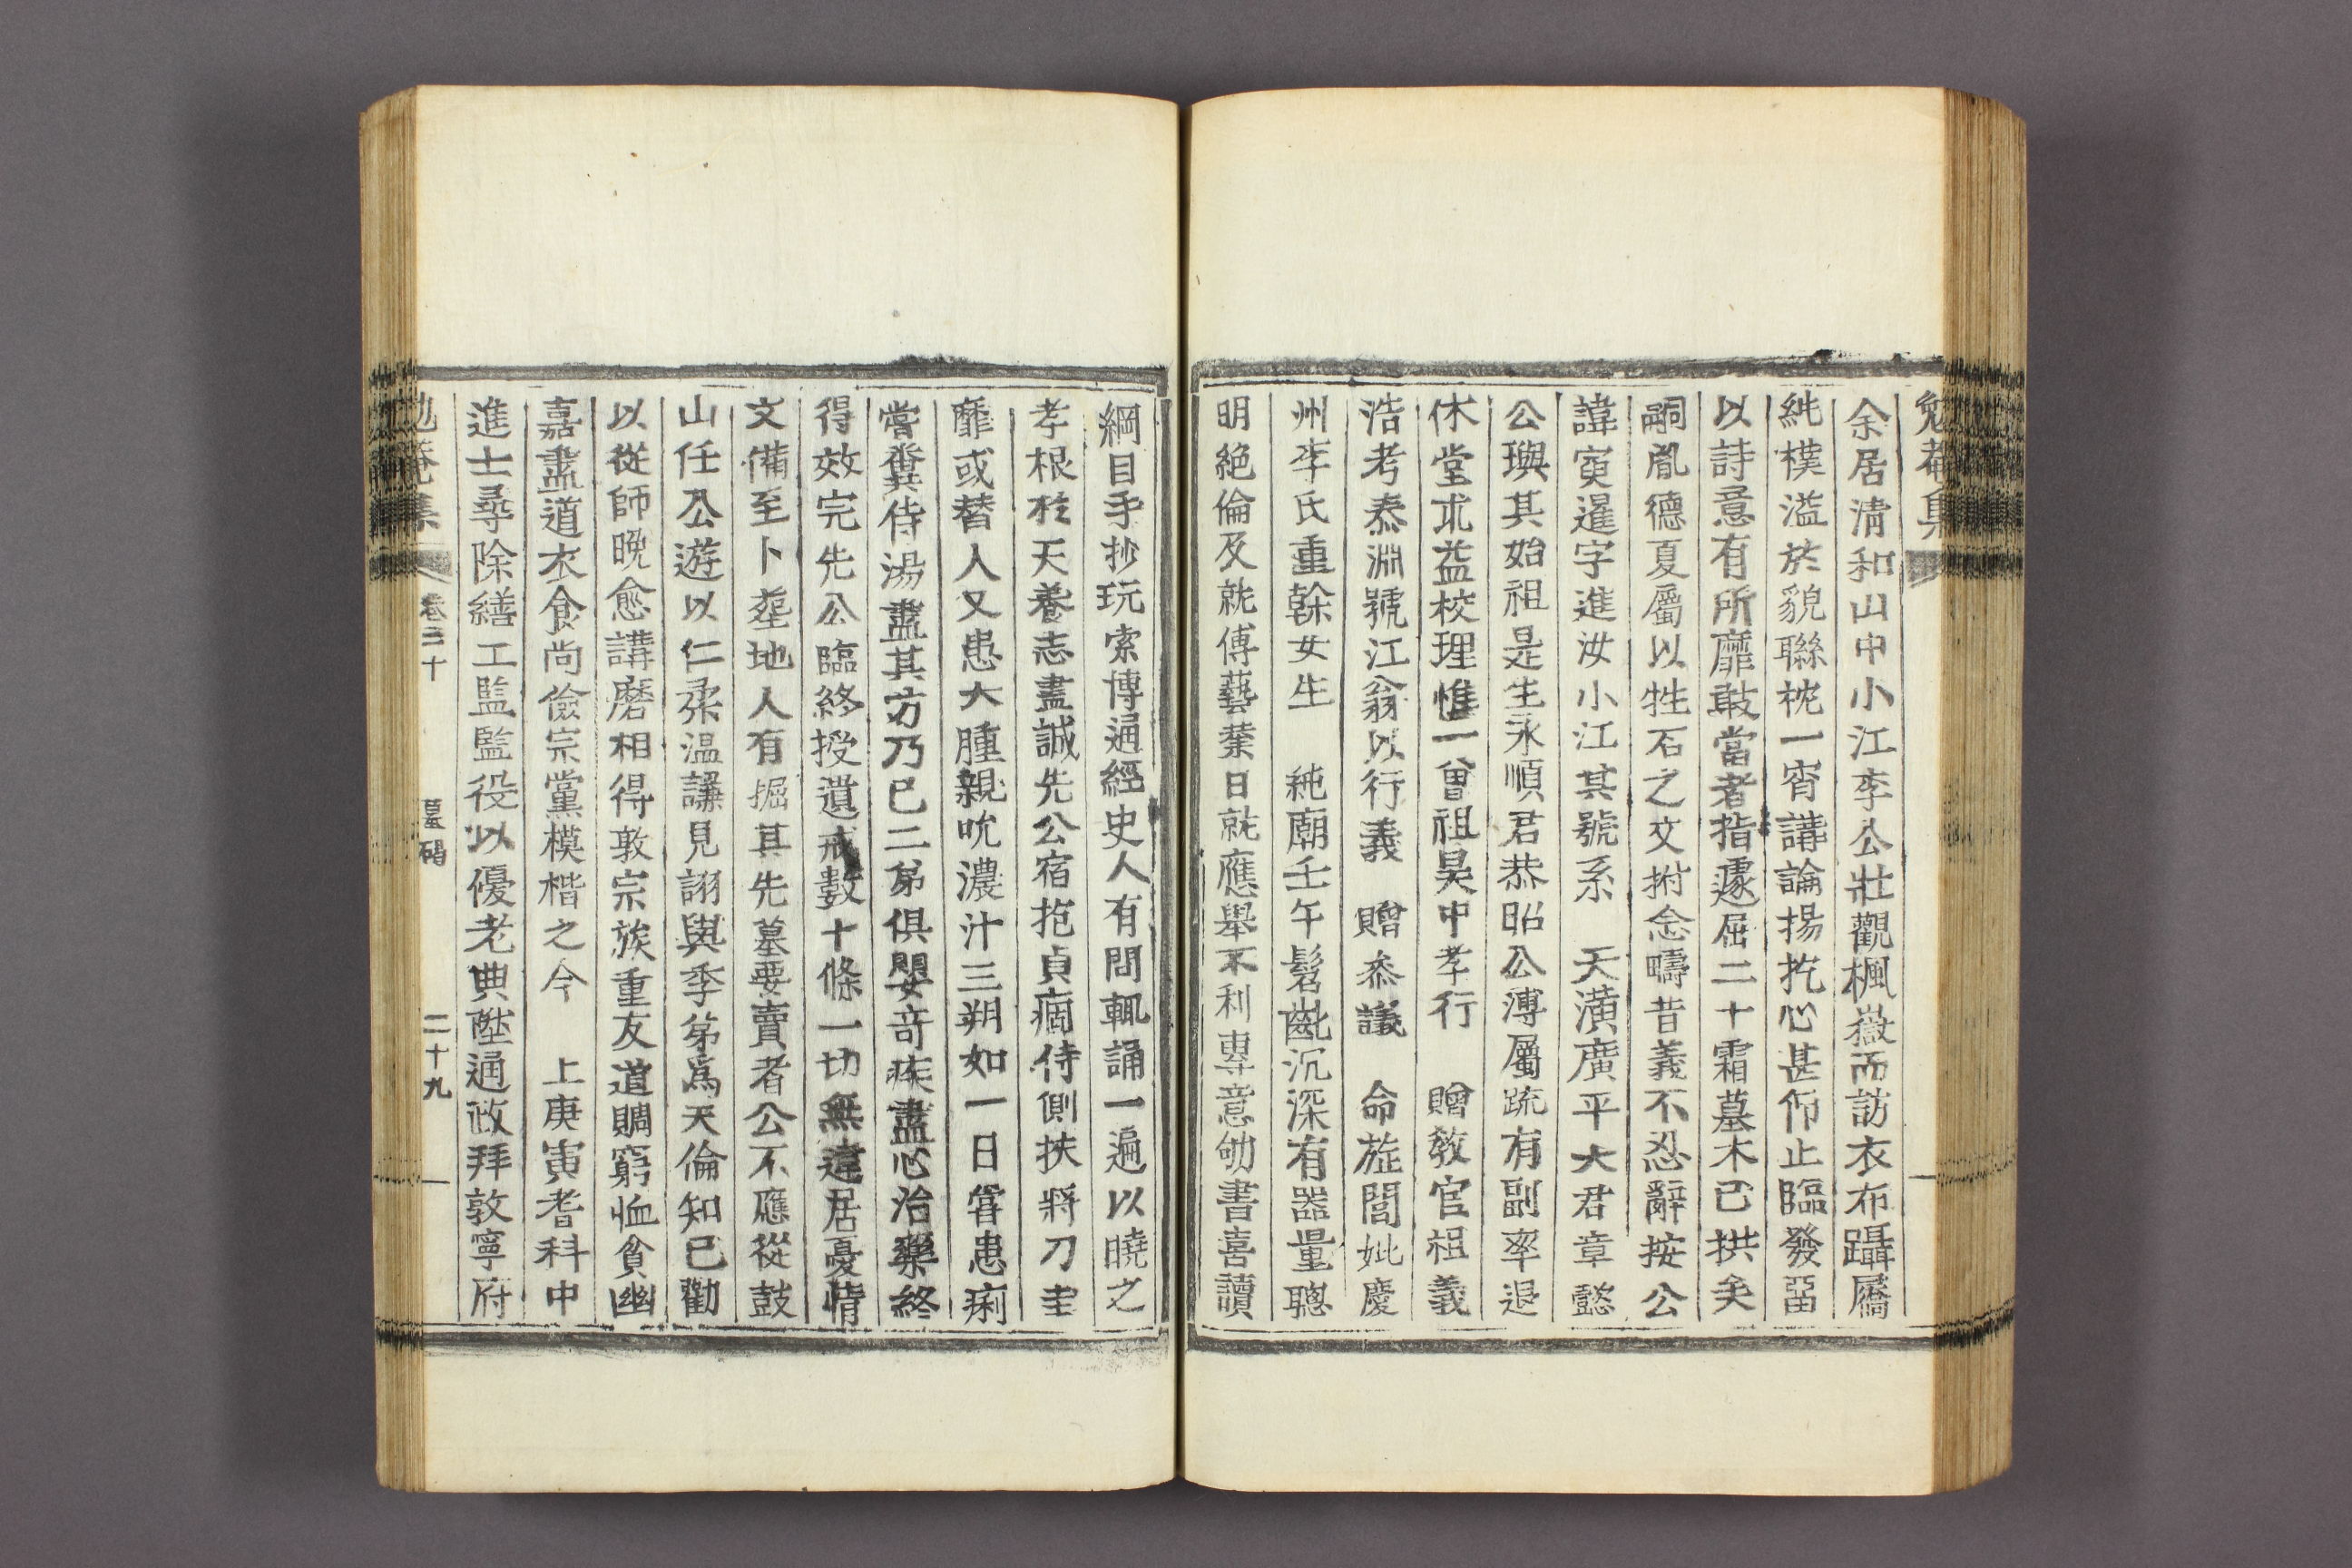 勉菴集
余居淸和山中小江李公壯觀楓嶽而訪衣布躡屩
純樸溢於貌聯枕一宵講論揚扢心甚仰止臨發留
以詩意有所靡敢當者指遽屈二十霜墓木已拱矣
嗣胤德夏屬以牲石之文拊念疇昔義不忍辭按公
諱寅暹字進汝小江其號系 天潢廣平大君章懿
公璵其始祖是生永順君恭昭公溥屬疏有副率退
休堂朮益校理惟一曾祖昊中孝行 贈敎官祖義
浩考泰淵號江翁以行義 贈叅議 命旌閭妣慶
州李氏重榦女生 純廟壬午髫齔沉深有器量聰
明絶倫及就傅藝業日就應擧不利專意劬書喜讀
綱目手抄玩索博通經史人有問輒誦一遍以曉之
孝根於天養志盡誠先公宿抱貞痼侍側扶將刀圭
靡或替人又患大腫親吮濃汁三朔如一日甞患痢
嘗糞侍湯盡其方乃已二弟俱嬰奇疾盡心治藥終
得效完先公臨終授遺戒數十條一切無違居憂情
文備至卜塋地人有掘其先墓要賣者公不應從鼓
山任公遊以仁柔溫謙見詡與季弟爲天倫知已勸
以從師晩愈講磨相得敦宗族重友道賙窮恤貧幽
嘉盡道衣食尚儉宗黨模楷之今 上庚寅耆科中
進士尋除繕工監監役以優老典陞通政拜敦寧府
勉菴集 卷三十 墓碣 二十九